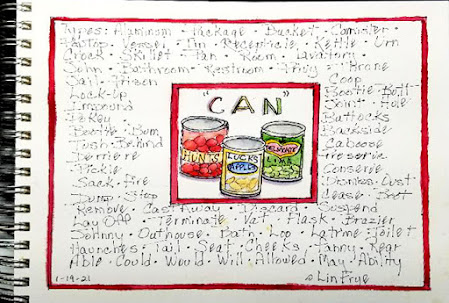 Types: Aluminum · Package · Bucket · Canister ·
Poptop · Vessel · Tin · Receptacle · Kettle · Urn
Crock · Skillet · Pan · Room · Lavatory ·
John · Bathroom · Restroom · Privy · Throne
Jail · Prison
Coop
Lock-Up
Bootie · Butt
Impound
Joint · Hole
Pokey
Buttocks
Bootie · Bum
Backside
Tush · Behind
Caboose
Derriere
Preserve
Pickle
Conserve
Sack · Fire
Dismiss · Oust
Dump · Stop
Cease · Boot
"CAN"
HUNTS
LUCKS
APPLES
LIMA
Remove · Castaway · Discard · Suspend
Lay Off · Terminate · Vat · Flask · Brazier
Johnny · Outhouse · Bath · Loo · Latrine · Toilet
Haunches · Tail · Seat · Cheeks · Fanny · Rear
Able · Could · Would · Will · Allowed · May · Ability
1-19-21
Lin Frye